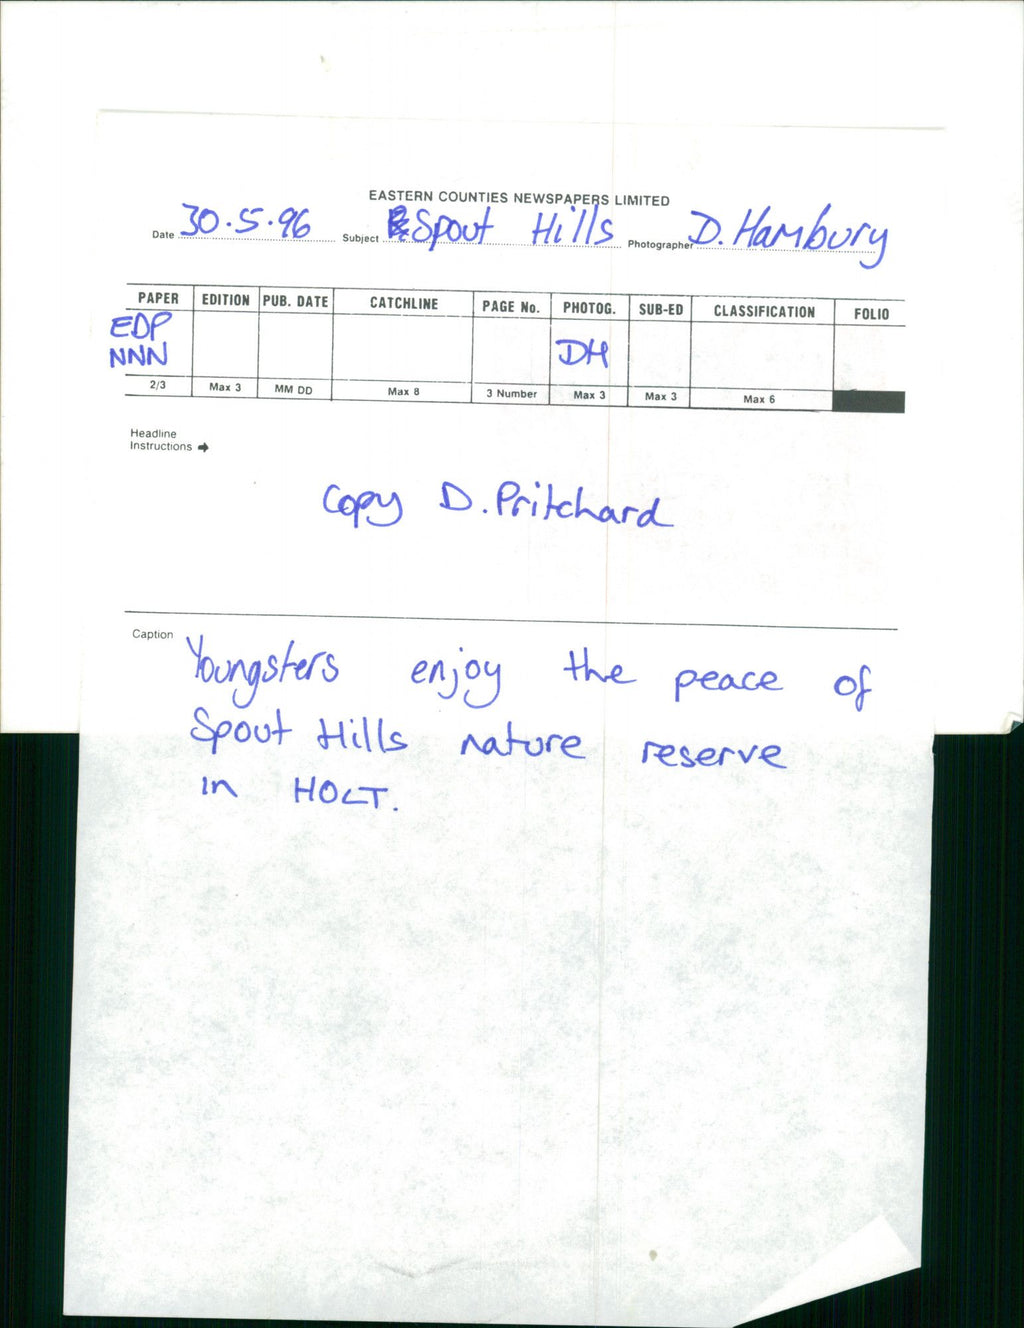 EASTERN COUNTIES NEWSPAPERS LIMITED
Date 30.5.96 Subject Spout Hills Photographer D. Hambury
PAPER EDITION PUB. DATE CATCHLINE PAGE No. PHOTOG. SUB-ED CLASSIFICATION FOLIO
EDP
NNN DH
2/3 Max 3 MM DD Max 8 3 Number Max 3 Max 3 Max 6
Headline
Instructions →
Copy D. Pritchard
Caption Youngsters enjoy the peace of
Spout Hills nature reserve
in HOLT.